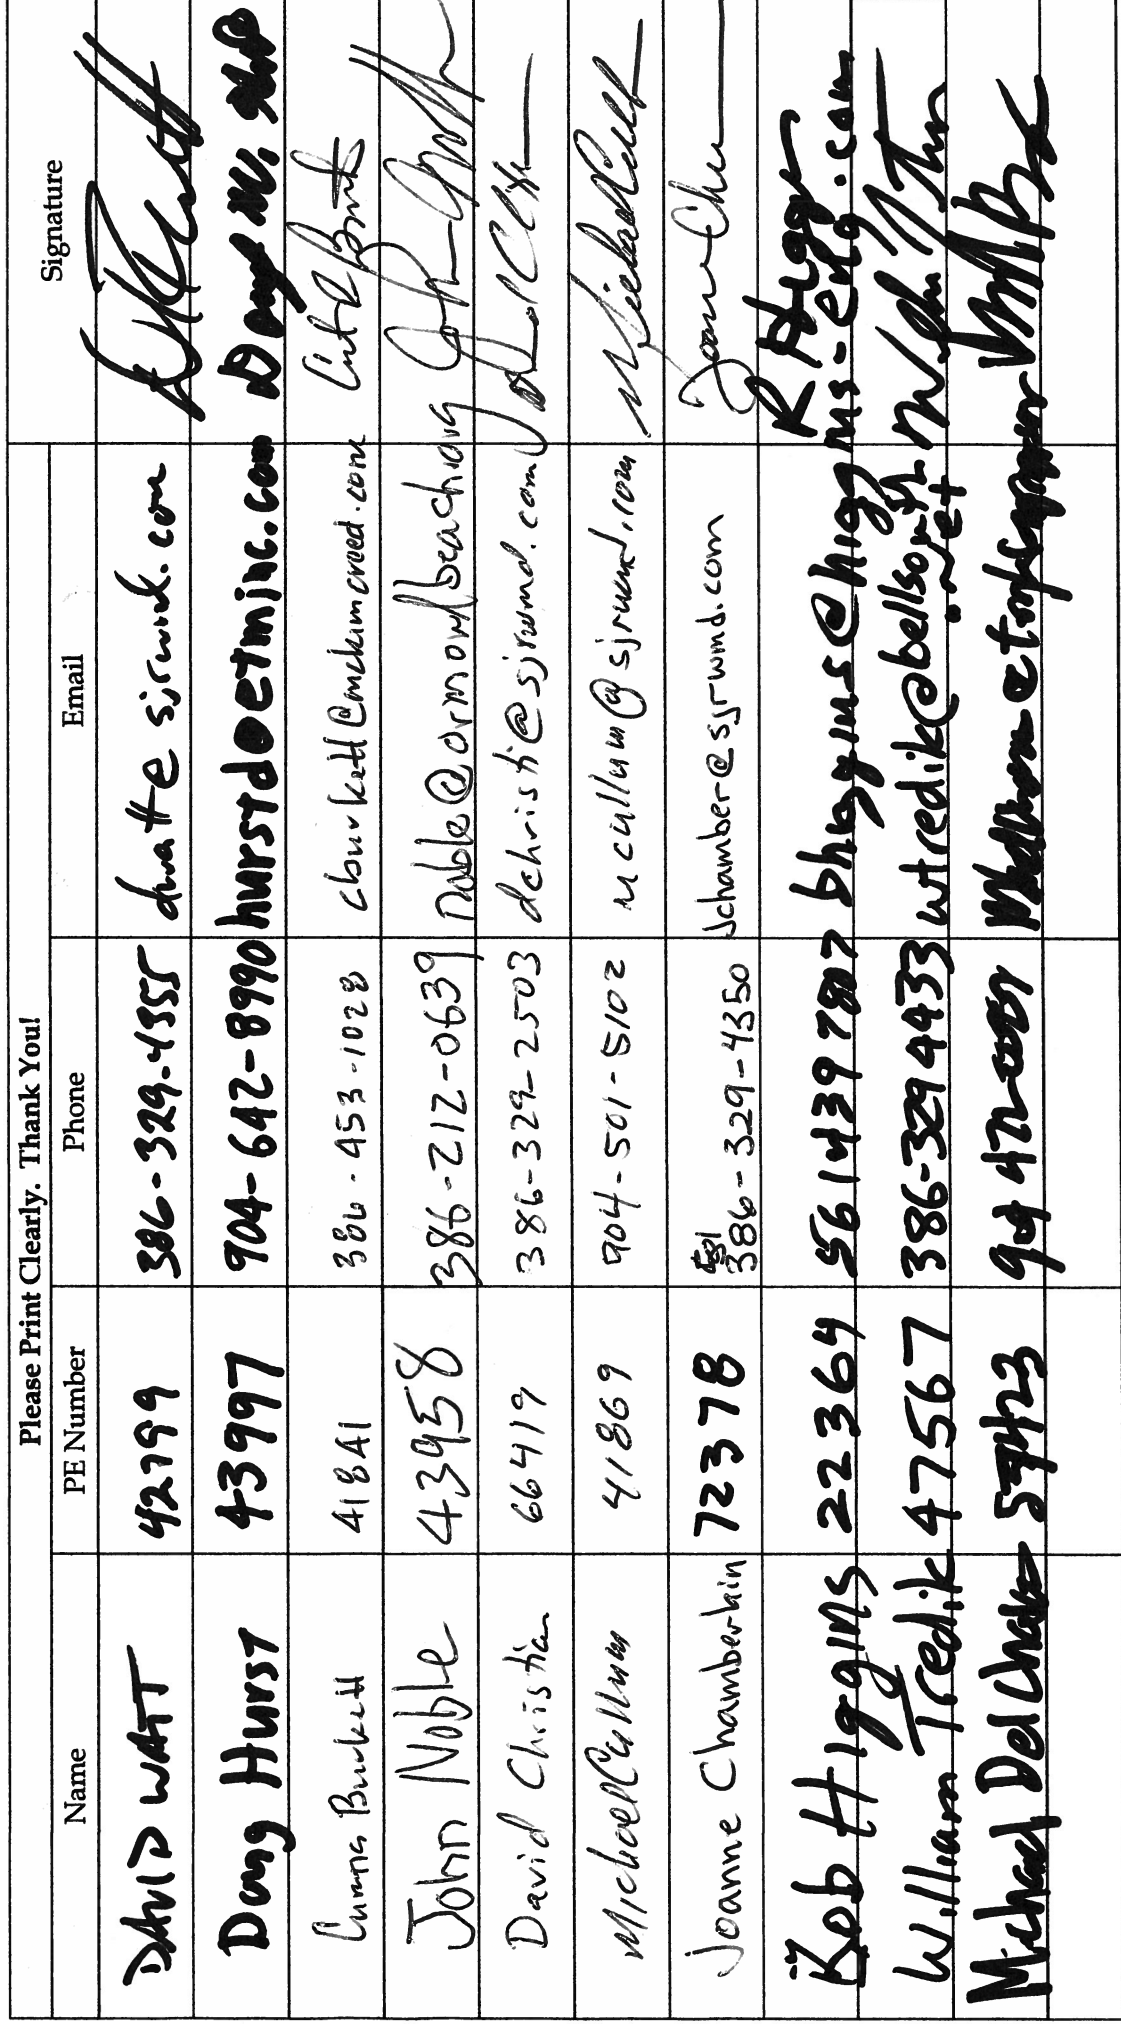 Please Print Clearly. Thank You!
Name PE Number Phone Email Signature
DAVID WATT 42799 386-329-4355 dwatt@sjrwmd.com
Doug Hurst 43997 904-642-8990 hurstd@etminc.com
Burkett 41841 386-453-1028 cburkett@mckimcreed.com
John Noble 43958 386-212-0639 Noble@ormondbeach.org
David Christian 66419 386-329-2503 dchristi@sjrwmd.com
Michael Cullum 41869 904-501-5102 mcullum@sjrwmd.com
Joanne Chamberlain 72378 386-329-4350 jchamber@sjrwmd.com
Bob Higgins 22364 561 439 7807 bhiggins@higgins-eng.com R Higgins
William Tredik 47567 386-329 4433 wtredik@bellsouth.net
Michael 904